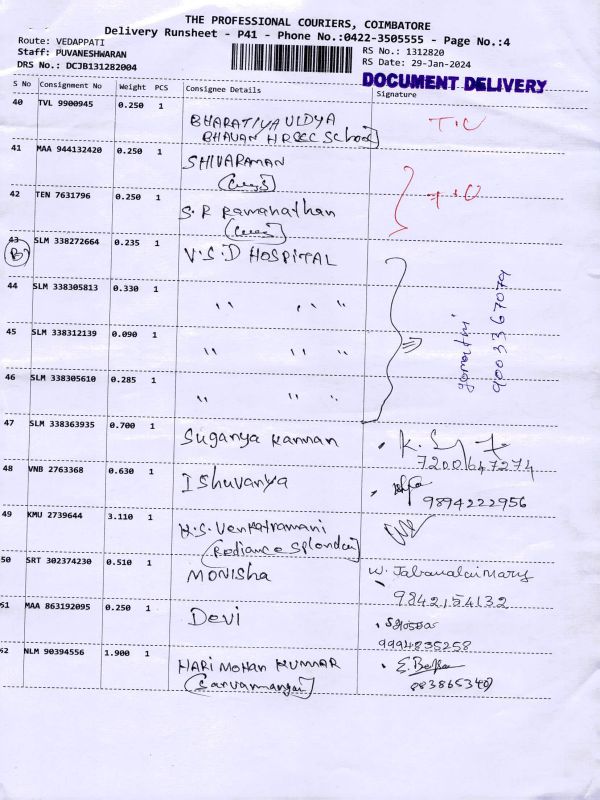 THE PROFESSIONAL COURIERS, COIMBATORE
Delivery Runsheet - P41 - Phone No.:0422-3505555 - Page No.:4
Route: VEDAPPATI
Staff: PUVANESHWARAN
DRS No.: DCJB131282004
RS No.: 1312820
RS Date: 29-Jan-2024
DOCUMENT DELIVERY
S No Consignment No Weight PCS Consignee Details Signature
40 TVL 9900945 0.250 1 BHARATIYA VIDYA
BHAVAN HR SEC School
41 MAA 944132420 0.250 1 SHIVARAMAN
42 TEN 7631796 0.250 1 S.R Ramanathan
43 SLM 338272664 0.235 1 V.S.D HOSPITAL
B
44 SLM 338305813 0.330 1 " " "
45 SLM 338312139 0.090 1 " " "
46 SLM 338305610 0.285 1 " " "
gomathi
9003367079
47 SLM 338363935 0.700 1 Suganya Kannan
7200647274
48 VNB 2763368 0.630 1 Ishuvanya
9894222956
49 KMU 2739644 3.110 1 K.S. Venkatramani
(Rediance Splender)
50 SRT 302374230 0.510 1 MONISha W. Jabamalai Mary
9842154132
51 MAA 863192095 0.250 1 Devi
9994835258
52 NLM 90394556 1.900 1 HARI MOHAN KUMAR